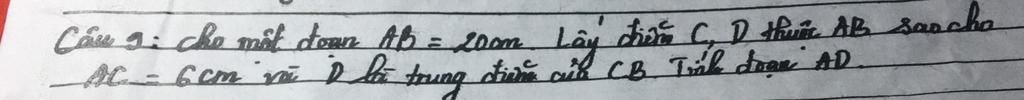 Câu 9: cho một đoạn AB = 20cm. Lấy điểm C, D thuộc AB sao cho
AC = 6cm và D là trung điểm của CB. Tính đoạn AD.